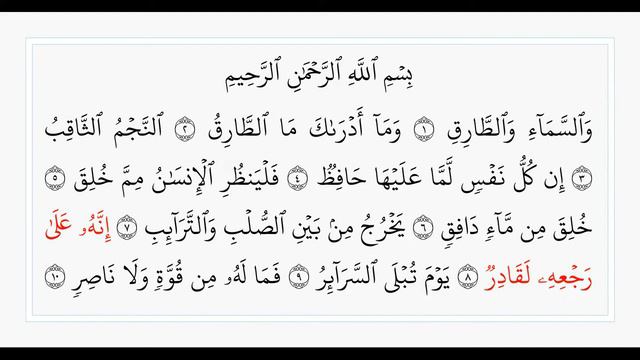 بِسۡمِ ٱللَّهِ ٱلرَّحۡمَٰنِ ٱلرَّحِيمِ
وَٱلسَّمَآءِ وَٱلطَّارِقِ ١ وَمَآ أَدۡرَىٰكَ مَا ٱلطَّارِقُ ٢ ٱلنَّجۡمُ ٱلثَّاقِبُ
٣ إِن كُلُّ نَفۡسٖ لَّمَّا عَلَيۡهَا حَافِظٞ ٤ فَلۡيَنظُرِ ٱلۡإِنسَٰنُ مِمَّ خُلِقَ ٥
خُلِقَ مِن مَّآءٖ دَافِقٖ ٦ يَخۡرُجُ مِنۢ بَيۡنِ ٱلصُّلۡبِ وَٱلتَّرَآئِبِ ٧ إِنَّهُۥ عَلَىٰ
رَجۡعِهِۦ لَقَادِرٞ ٨ يَوۡمَ تُبۡلَى ٱلسَّرَآئِرُ ٩ فَمَا لَهُۥ مِن قُوَّةٖ وَلَا نَاصِرٖ ١٠